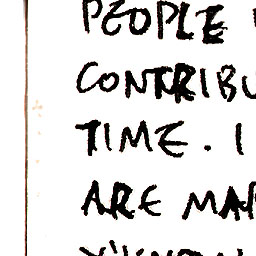 PEOPLE
CONTRIBU
TIME. I
ARE MA